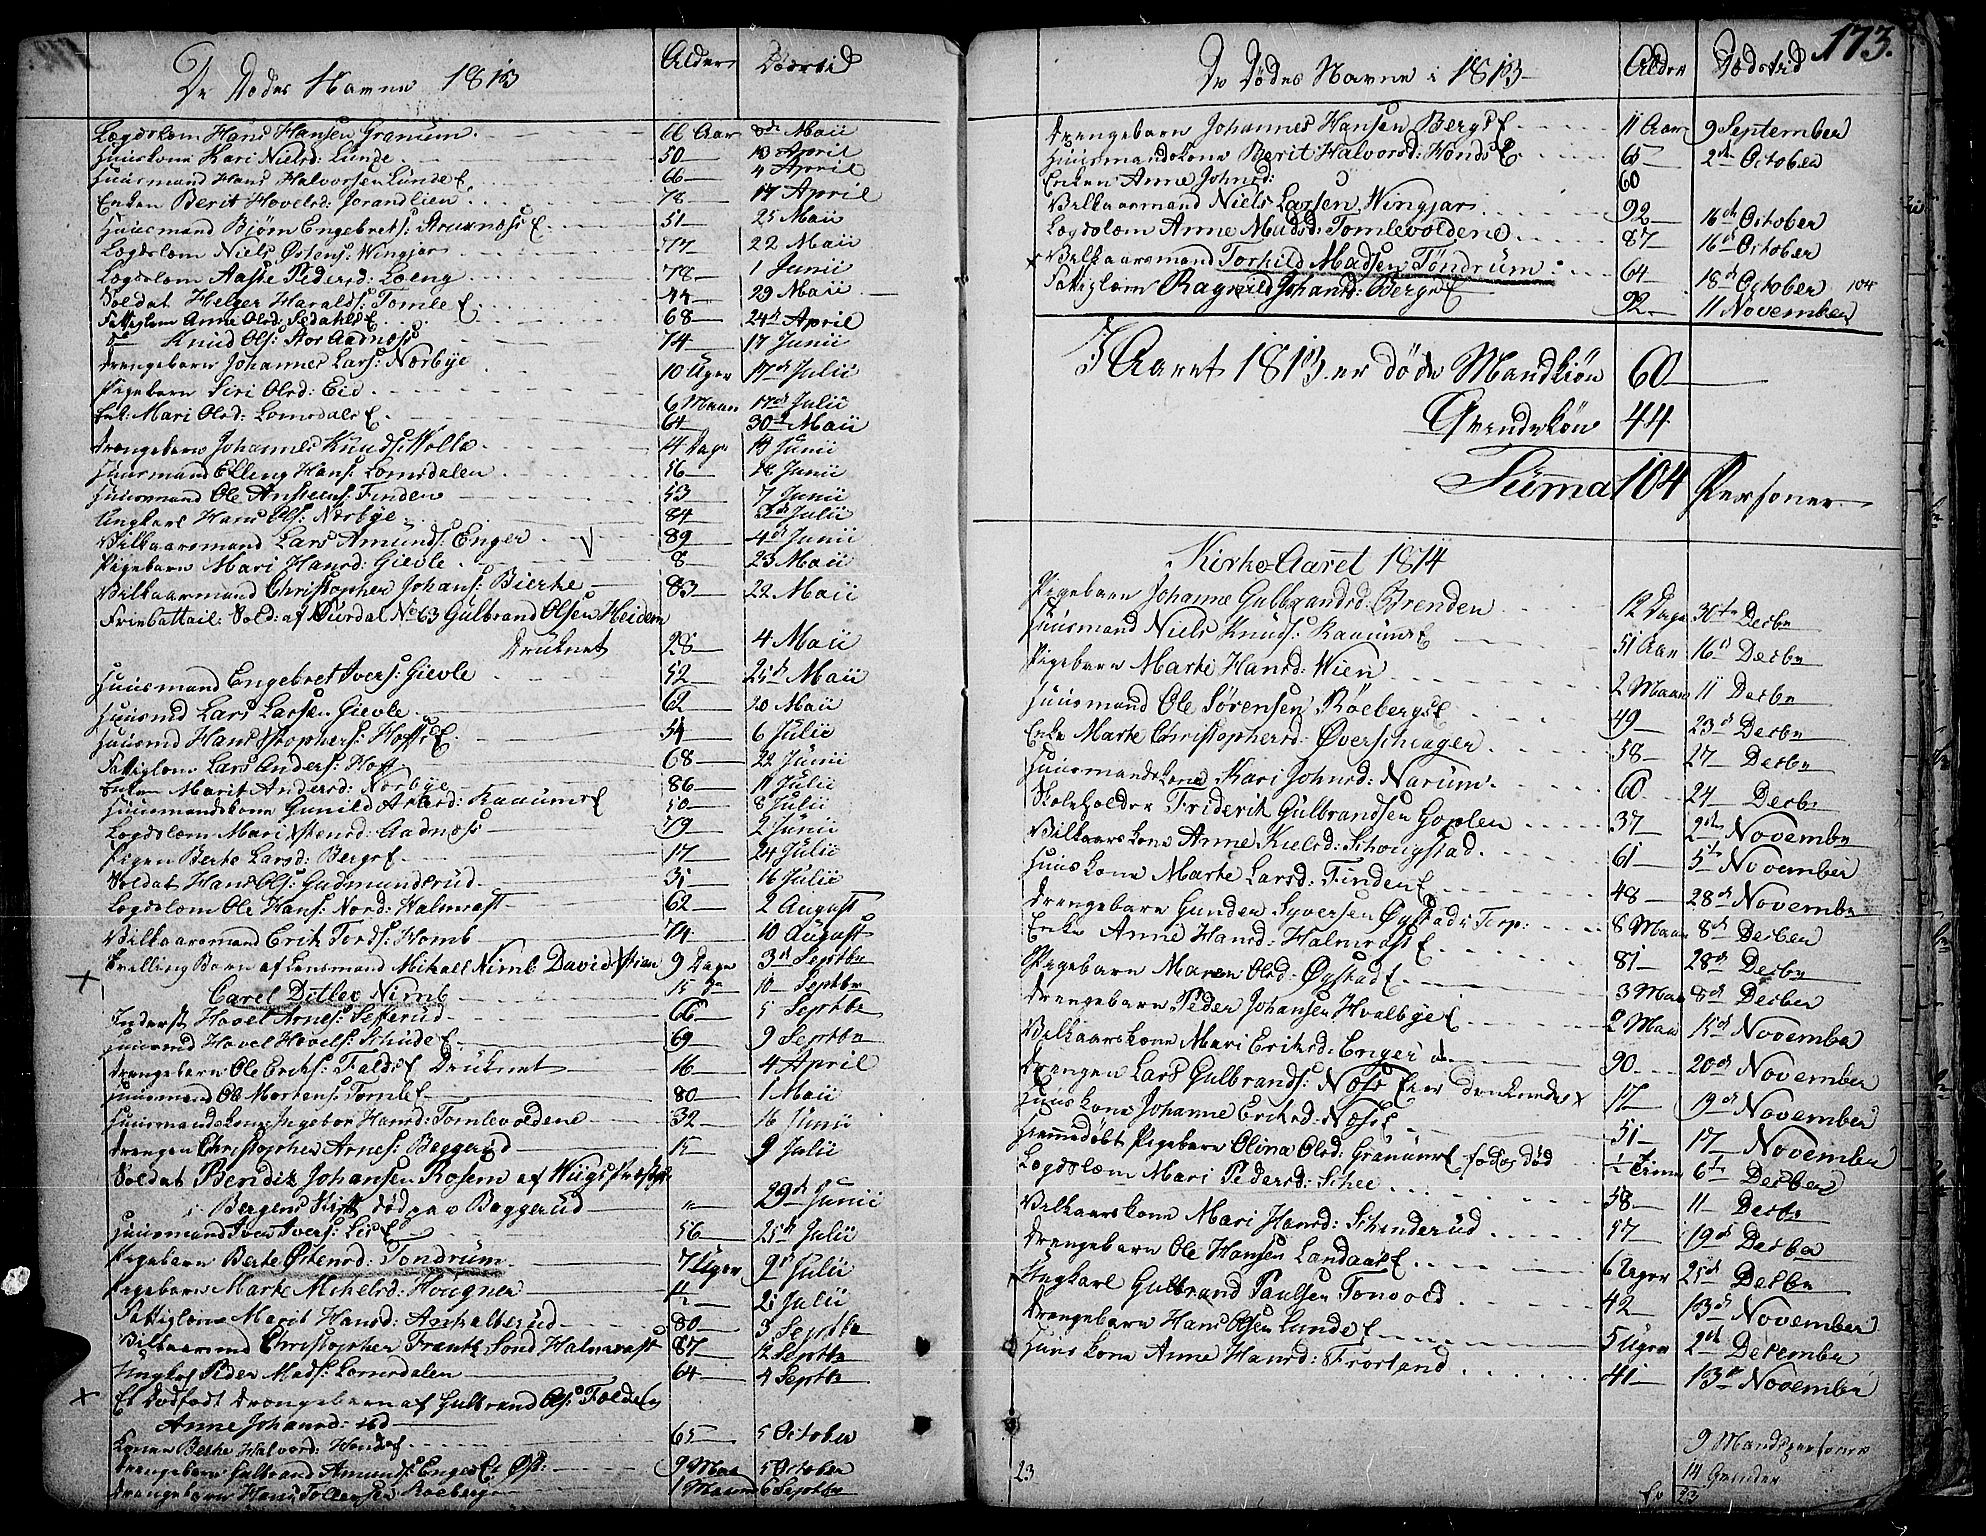 De Dødes Navne 1813 Alder Dødstid
Lægdslem Hans Hansen Granum 66 Aar 8de Maii
Huuskone Kari Nielsd: Lunde 50 13 April
Huusmand Hans Halvorsen Lunde E. 66 4 April
Enken Berit Hovelsd: Jorandlien 78 17 April
Huusmand Biørn Engebrets: E. 51 25 Maii
Lægdslem Niels Østens: Wingjar 77 22 Maii
Lægdslem Aaste Pedersd: Loeng 78 1 Junii
Soldat Helger Haralds: Tomle E. 44 29 Maii
Fattiglem Anne Olsd: E. 68 24de April
do Knud Ols: Stor Aadnøss 74 17 Junii
Drengebarn Johannes Lars: Norbye 10 Uger 17de Julii
Pigebarn Siri Olsd: Eid 6 Maan 17de Julii
Enk: Mari Olsd: Lomsdals E. 64 30de Maii
Drengebarn Johannes Knuds: Wolla 4 Dage 18 Junii
Huusmand Elling Hans: Lomsdalen 56 28 Junii
Huusmand Ole Finden 53 7 Junii
Ungkarl Hans Ols: Norbye 84 Julii
Vilkaarsmand Lars Amunds: Enger 89 4de Junii
Pigebarn Mari Hansd: Gievle 8 23 Maii
Vilkaarsmand Christopher Johans: Bierke 83 22 Maii
Fribattail: Sold: af No 63 Gulbrand Olsen Heiden
Druknet 28 4 Maii
Huusmand Engebret Ivers: Gievle 52 25de Maii
Huusmd Lars Larsen Gievle 62 20 Maii
Huusmd Hans Stophers: Hoffs E. 54 6 Julii
Fattiglem Lars Anders: Hoff 68 22 Junii
Enken Marit Andersd: Norbye 86 11 Julii
Huusmandskone Gunild Kaaums E 50 8 Julii
Lægdslem Mari Aadnøss 79 2 Junii
Pigen Berte Larsd: Bergs E. 17 24 Julii
Soldat Hans Ols: Gudmundsrud 31 16 Julii
Lægdslem Ole Hans: Nord: Halmrast 62 2 August
Vilkaarsmand Erik Tords: Homb 74 10 August
Tvilling Barn af Lensmand Mikael Nimb David 9 Dage 3de Septbr
Carel Ditlev Nimb 15 Do 10 Septbr
Inderst Hovel Arnes: Setterud 66 5 Septbr
Huusmd Hovel Hovels: Schude E. 69 9 Septbr
Drengebarn Ole Eriks: Falds E Druknet 16 4 April
Huusmand Ole Mortens: Tomle E. 80 1 Maii
Huusmandskone Ingebor Hansd: Tomlevoldene 32 16 Junii
Drengen Christopher Arnes: Baggerud 15 9 Julii
Soldat Bendix Johansen Rosem af
Bergens Stift død paa Baggerud " 29de Junii
Huusmand Iver Ivers: Lie E 56 25de Julii
Pigebarn Berte Østensd: Tondrum 7 Uger 9de Julii
Pigebarn Marte Mikelsd: Hougner 2de Julii
Fattiglem Marit Hansd: 80 3 Septbr
Vilkaarsmd Christopher Frantz Sønd Halmrast 87 12 Septbr
Ungk: Peder Mads: Lomsdalen 64 4 Septbr
Et dødfødt Drengebarn af Gulbrand Ols:
Anne Johansd: ibd
Konen Berthe Halvord: Honds E 65 5 October
Drengebarn Gulbrand Amunds: Enger 9 Maa 5 October
Drengebarn Hans Tollefsen Røeberg 1 Maaned 6 Septbr
De Dødes Navne i 1813 Alder Dødstid 173.
Drengebarn Johannes Hansen Bergs E 11 Aar 9 September
Huusmandskone Berit Halvorsd: Honds E. 65 2de October
Enken Anne Johnsd: 60
Vilkaarsmand Niels Larsen Wingjar 92 16de October
Lægdslem Anne Madsd: Tomlevoldene 87 16de October
Vilkaarsmand Torkild Madsen Tøndrum 64 18de October 104
Fattiglem Ragnild Johansd: Bergs E 92 11 November
I Aaret 1813 er døde Mandkiøn 60
Qvindekiøn 44
Summa 104 Personer
Kirke-Aaret 1814
Pigebarn Johanne Gulbrandsd: Brenden 12 Dage 30te Decbr
Huusmand Niels Knuds: Kaaums E 51 Aar 16de Decbr
Pigebarn Marte Hansd: Wien 2 Maan 11 Decbr
Huusmand Ole Sørensen Røebergs E. 49 23de Decbr
Enke Marte Christophersd: Øverschiager 58 27 Decbr
Huusmandskone Kari Johnsd: Narum 60 24 Decbr
Skoleholder Friderik Gulbrandsen Goplen 37 2den Novembr
Vilkaarskone Anne Kielsd: Schougstad 61 5te November
Huuskone Marte Larsd: Finden E 48 28de Novembr
Drengebarn Gunder Syversen Øystads Torp: 8 Maan 8de Decber
Enke Anne Hansd: Halmrast E 81 28de Decbr
Pigebarn Maren Olsd: Øystad E. 3 Maa 8de Decber
Drengebarn Peder Johansen Hvalbye E 2 Maa 15de November
Vilkaarskone Mari Eriksd: Enger 90 20de November
Drengen Lars Gulbrands: Nøss E 17 19de November
Huuskone Johanne Eriksd: Nøss E 51 17 November
Hiemmedøbt Pigebarn Olina Olsd: Granums E fød og død ½ Time 6te Decber
Lægdslem Mari Pedersd: Schee 58 11 Decbr
Vilkaarskone Mari Hansd: Schinderud 57 19de Decber
Drengebarn Ole Hansen Landaas E. 6 Uger 25de Decbr
Ungkarl Gulbrand Paulsen Tonvold 42 13de November
Drengebarn Hans Olsen Lunde E 5 Uger 2den December
Huuskone Anne Hansd: Frøsland 41 13de November
23
9 Mandspersoner
14 Qvinder
23